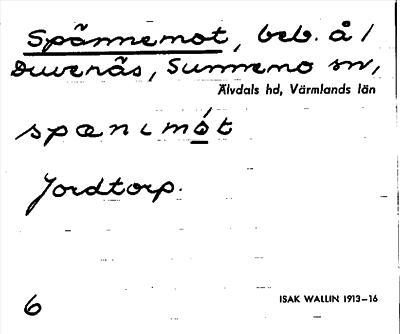 Spännemot, beb. å /
Duvenäs, Sunnemo sn,
Älvdals hd, Värmlands län
spænımót
Jordtorp.
6
ISAK WALLIN 1913–16